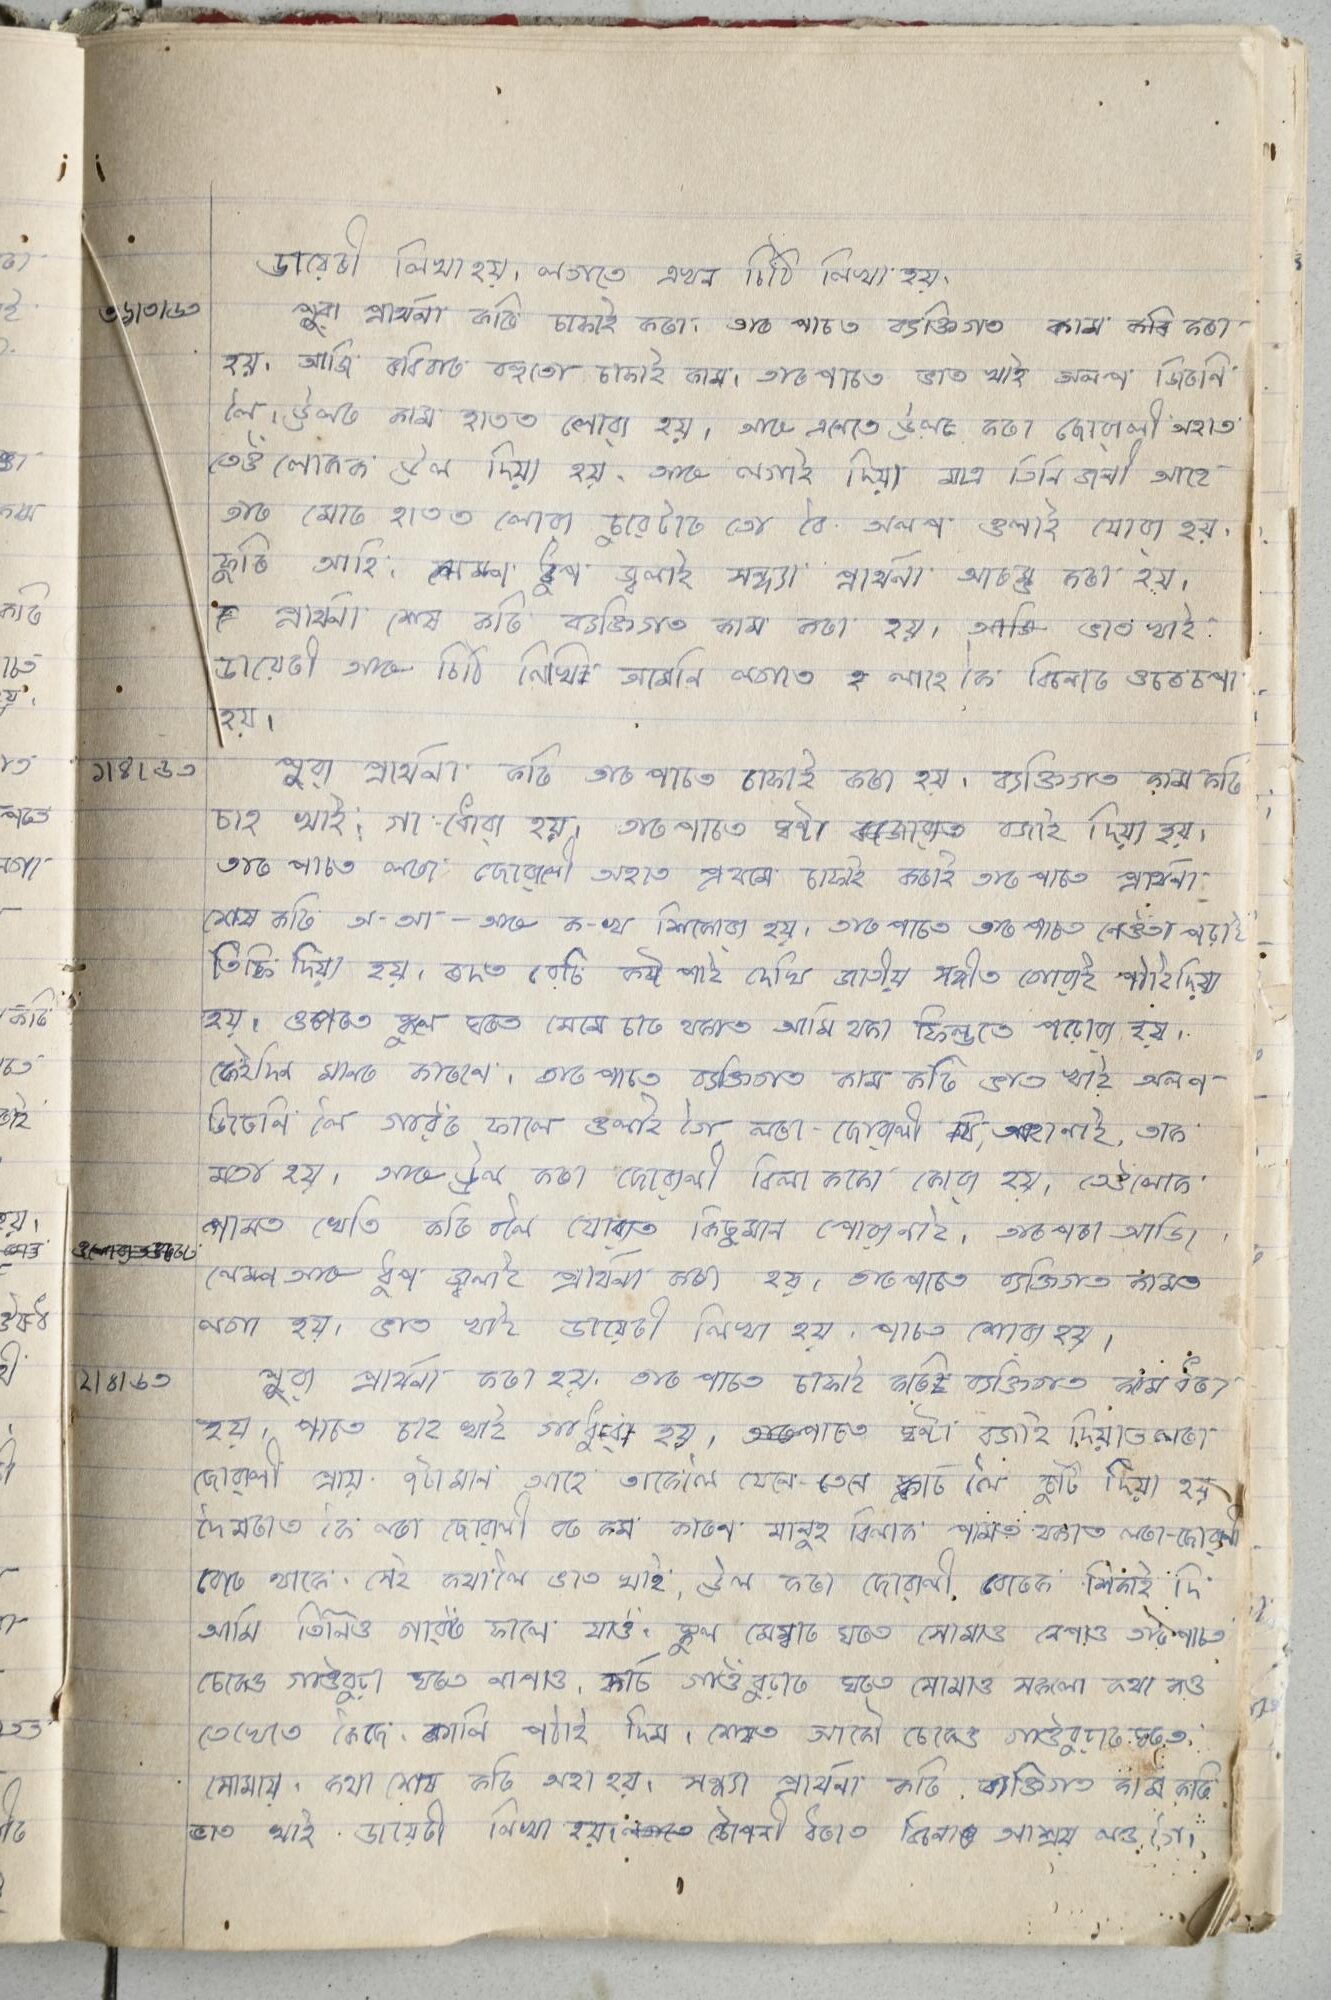 ডায়েৰী লিখা হয়। লগতে এখন চিঠি লিখা হয়।
৩১।৩।৬৩ পুৱা প্ৰাৰ্থনা কৰি চাফাই কৰা। তাৰ পাচত ব্যক্তিগত কাম কৰি কৰা
হয়। আজি ৰবিবাৰ বহুতো চাফাই কাম। তাৰ পাচত ভাত খাই অলপ জিৰণি
লৈ। ড্ৰেলৰ কাম হাতত লোৱা হয়। আৰু এনেতে ড্ৰেলৰ কৰা ছোৱালী অহাত
তেওঁলোকক ড্ৰেল দিয়া হয়। আৰু লগাই দিয়া মাত্ৰ তিনি জনী আহে
তাৰ মোৰ হাতত লোৱা চুৱেটাৰ তো থৈ অলপ ওলাই যোৱা হয়।
ফুৰি আহি। লেম্প ধূপ জ্বলাই সন্ধ্যা প্ৰাৰ্থনা আৰম্ভ কৰা হয়।
প্ৰাৰ্থনা শেষ কৰি ব্যক্তিগত কাম কৰা হয়। আজি ভাত খাই
ডায়েৰী আৰু চিঠি লিখি আমেনি লগাত লাহে কৈ বিচনাৰ ওচৰ চপা
হয়।
১।৪।৬৩ পুৱা প্ৰাৰ্থনা কৰি তাৰ পাচত চাফাই কৰা হয়। ব্যক্তিগত কাম কৰি
চাহ খাই। গা-ধোৱা হয়। তাৰ পাচত ঘণ্টা বজাই দিয়া হয়।
তাৰ পাচত লৰা ছোৱালী অহাত প্ৰথমে চাফাই কৰাই তাৰ পাচত প্ৰাৰ্থনা
শেষ কৰি অ-আ-আৰু ক-খ শিকোৱা হয়। তাৰ পাচত তাৰ পাচত নেওঁতা পঢ়াই
দিয়া হয়। ৰদত বেচি কষ্ট পাই দেখি জাতীয় সঙ্গীত গোৱাই পঠাইদিয়া
হয়। ওচৰতে স্কুল ঘৰত মেমে চাৰ থকাত আমি থকা ফিল্ডতে পঢ়োৱা হয়।
কেইদিন মানৰ কাৰণে। তাৰ পাচত ব্যক্তিগত কাম কৰি ভাত খাই অলপ
জিৰেনি লৈ গাৱঁৰ ফালে ওলাই গৈ লৰা-ছোৱালী অহা নাই, তাক
মতা হয়। আৰু ড্ৰেল কৰা ছোৱালী বিলাককো কোৱা হয়, তেওঁলোক
পামত খেতি কৰিবলৈ যোৱাত কিছুমান পোৱা নাই। তাৰপৰা আহি
লেম্প আৰু ধূপ জ্বলাই প্ৰাৰ্থনা কৰা হয়। তাৰ পাচত ব্যক্তিগত কামত
লগা হয়। ভাত খাই ডায়েৰী লিখা হয়। পাচত শোৱা হয়।
২।৪।৬৩ পুৱা প্ৰাৰ্থনা কৰা হয়। তাৰ পাচত চাফাই কৰি ব্যক্তিগত কাম কৰা
হয়। পাচত চাহ খাই গা ধুৱা হয়। পাচত ঘণ্টা বজাই দিয়াত লৰা
ছোৱালী প্ৰায় ৭টা মান আহে তাকেলৈ যেনে-তেনে স্কাৰ্ট লৈ ছুটি দিয়া হয়
দৈমৰাত কৈ লৰা ছোৱালী বৰ কম কাৰণ মানুহ বিলাক পামত থকাত লৰা-ছোৱালী
বোৰ থাকে। সেই কথালৈ ভাত খাই, ড্ৰেল কৰা ছোৱালী বোৰক শিকাই দি
আমি তিনিও গাৱঁৰ ফালে যাওঁ। স্কুল মেম্বাৰ ঘৰত সোমাও নেপাও তাৰ পাচত
চেকেণ্ড গাওঁবুঢ়া ঘৰত নাপাও, ফাৰ্চ গাওঁবুঢ়াৰ ঘৰত সোমাও সকলো কথা কও
তেখেতে কৈছে কালি পঠাই দিম। শেষত আকৌ চেকেণ্ড গাওঁবুঢ়াৰ ঘৰত
সোমায়। কথা শেষ কৰি অহা হয়। সন্ধ্যা প্ৰাৰ্থনা কৰি ব্যক্তিগত কাম কৰি
ভাত খাই ডায়েৰী লিখা হয়। টোপনী ধৰাত বিচনাত আশ্ৰয় লওঁ গৈ।